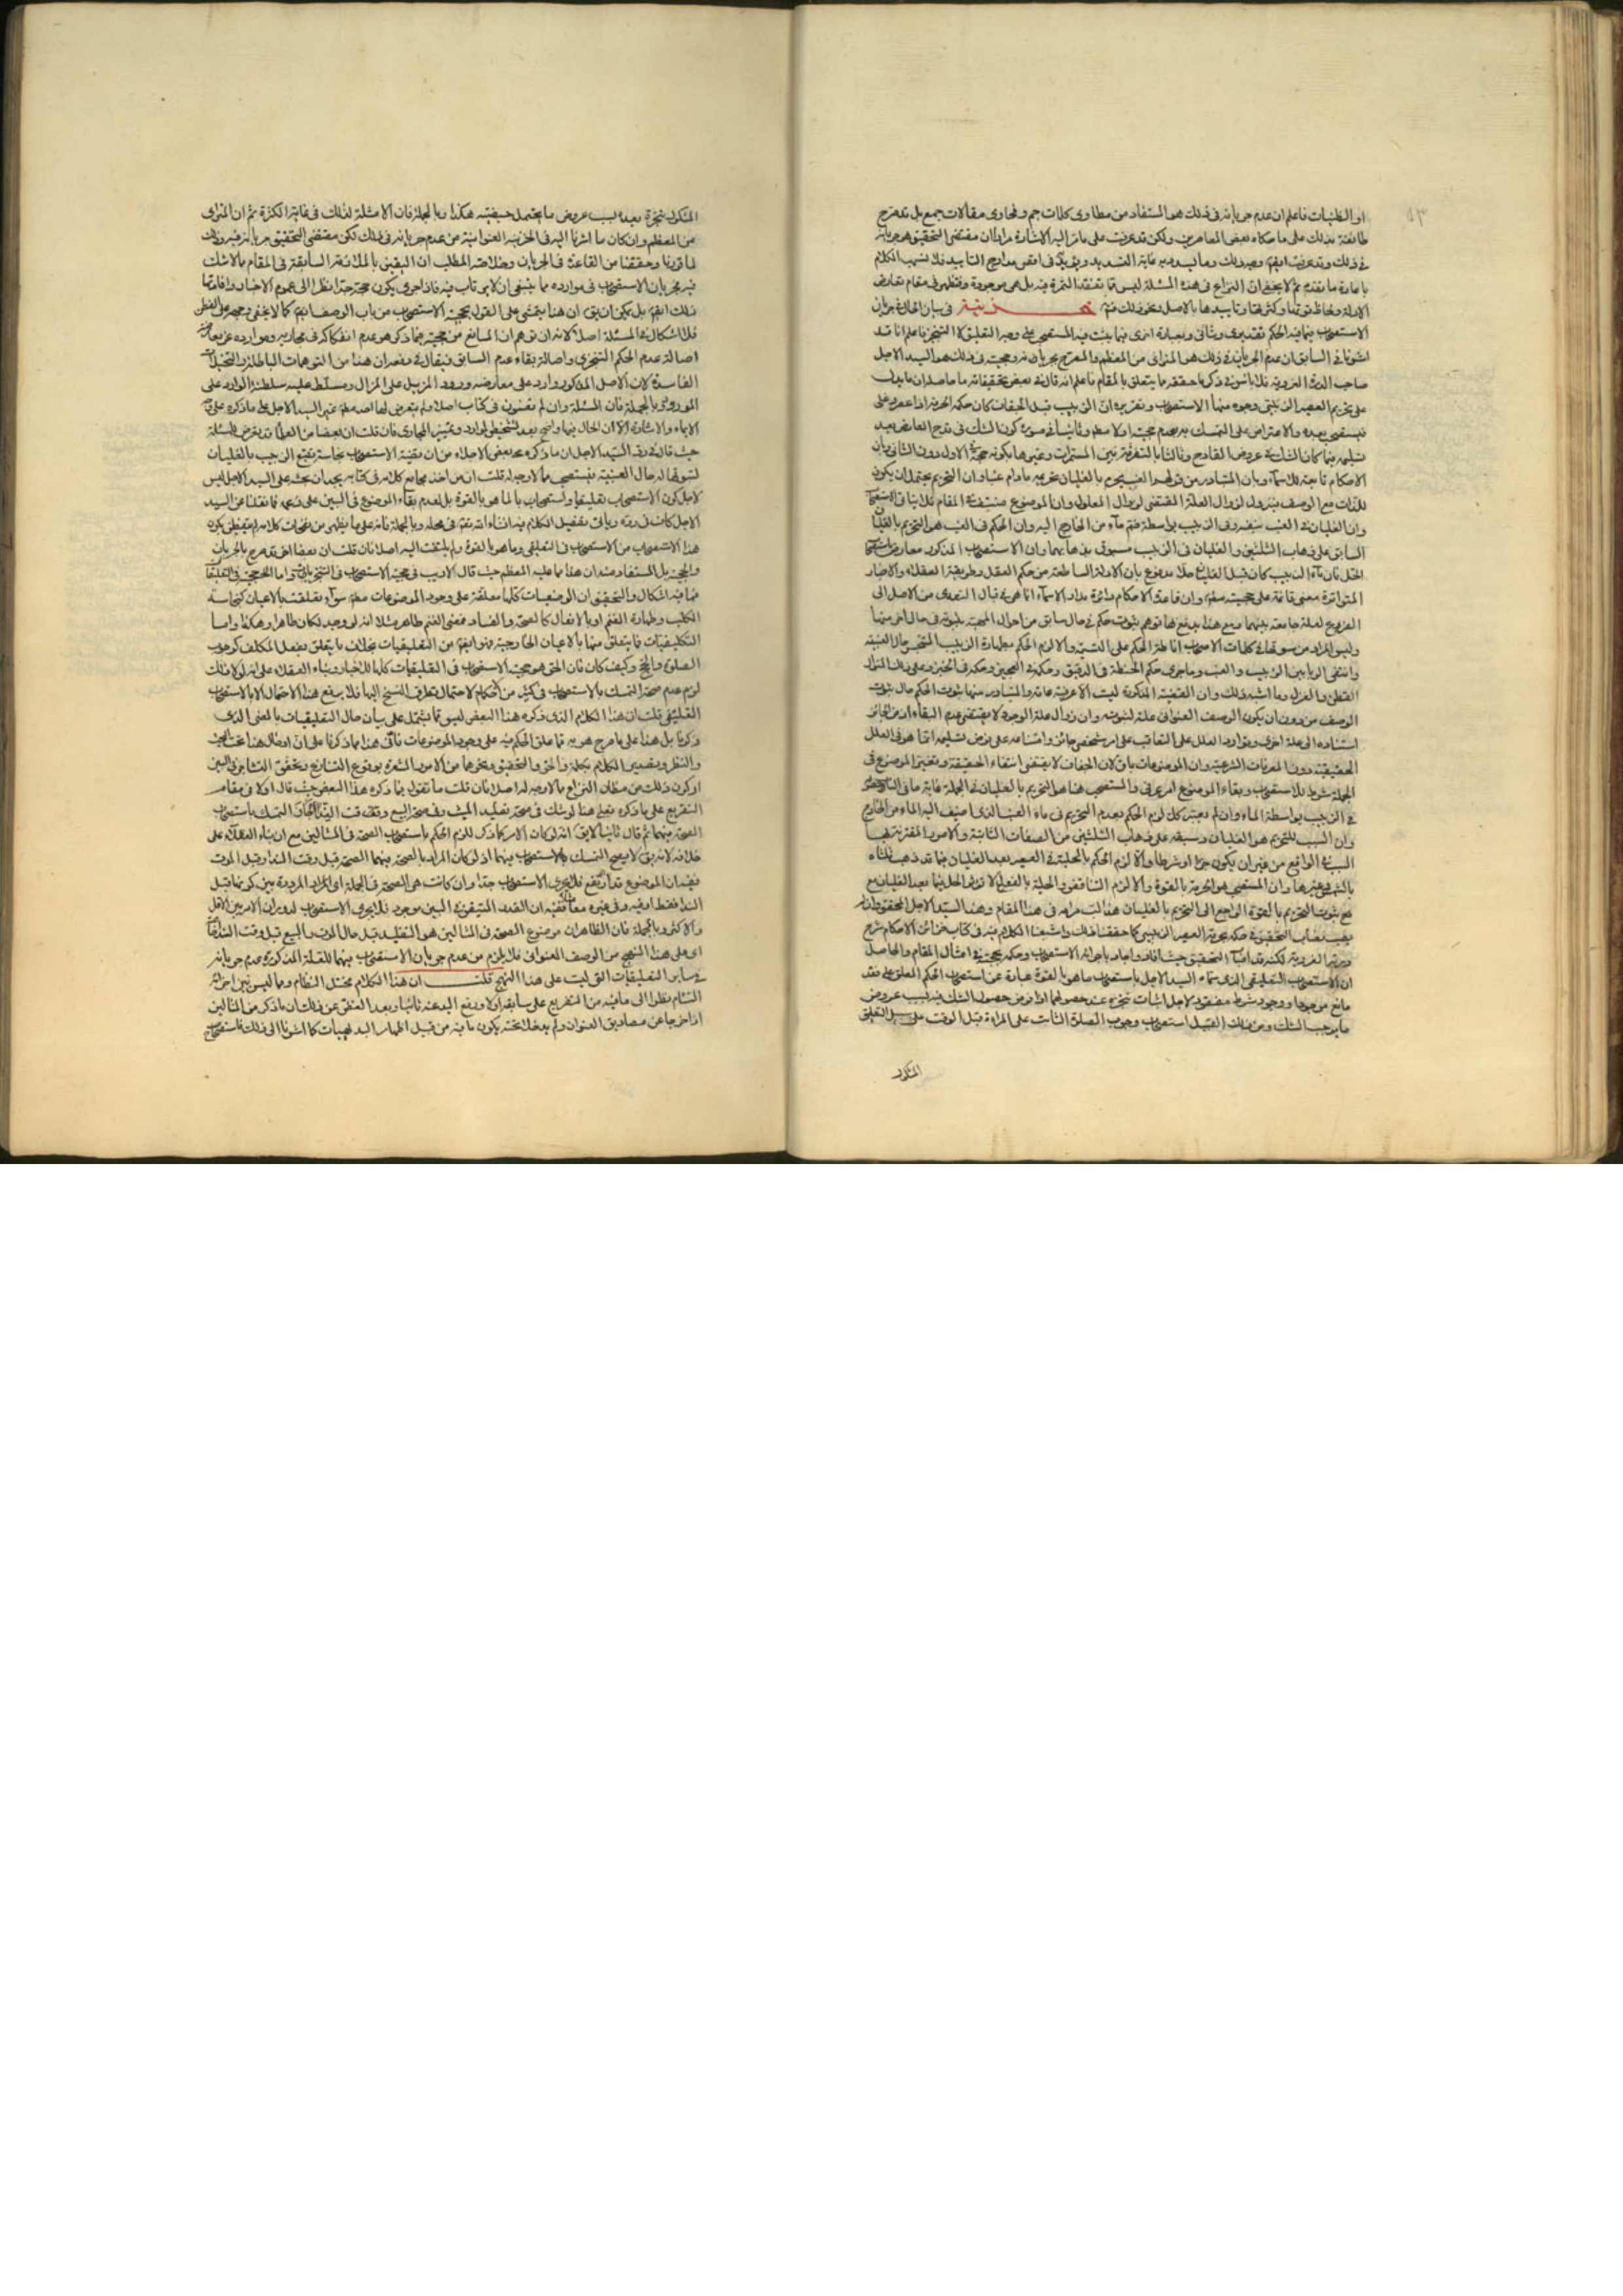 او الظنيات فاعلم ان عدم جريانه فى ذلك هو المستفاد من مطاوى كلمات جم وفحاوى مقالات جمع بل قد صرح
طائفة بذلك على ما حكاه بعض المعاصرين ولكن قد عرفت على ما مر اليه الاشارة مرارا ان مقتضى التحقيق هو جريانه
فى ذلك وقد عرفت ايضا وجه ذلك وما
باعادة ما تقدم ثم لا يخفى ان النزاع فى هذه المسئلة ليس مما تفتقد الثمرة فيه بل هى موجودة وتظهر فى مقام تعارض
الادلة ولحاظ قوتها وكثرتها وتأييدها بالاصل ونحو ذلك فتم خزينة فى بيان الحال فى جريان
الاستصحاب فيما فيه الحكم تقديرى وشانى وبعبارة اخرى فيما يثبت فيه المستصحب على وجه التعليق لا التنجز فاعلم انا قد
اشرنا فى السابق ان عدم الجريان فى ذلك هو المترائى من المعظم والمصرح بجريانه وحجيته فى ذلك هو السيد الاجل
صاحب الدرة الغروية فلا باس فى ذكر ما حققه مما يتعلق بالمقام فاعلم انه قال فى بعض تحقيقاته ما حاصله ان ما يدل
على تحريم العصير الزبيبى وجوه منها الاستصحاب وتقريره ان الزبيب قبل الجفاف كان حكمه الحرمة اذا عصر وغلى
فيستصحب بعده والاعتراض على التمسك به بعدم حجيته اولا مطم وثانيا فى صورة كون الشك فى قدح العارض بعد
تسليمه فيما كان الشك فى عروض القادح وثالثا بالتفرقة بين المستمرات وغيرها بكونه حجة فى الاول دون الثانى وبان
الاحكام تابعة للاسماء وبان المتبادر من قولهم العنب يحرم بالغليان تحريمه مادام عنبا وان التحريم يحتمل ان يكون
للذات مع الوصف فيزول لزوال العلة المقتضى لزوال المعلول وان الموضوع منتف فى المقام
وان الغليان فى العنب بنفسه وفى الزبيب بواسطة ضم ماء من الخارج اليه وان الحكم فى العنب هو التحريم بالغليان
السابق على ذهاب الثلثين والغليان فى الزبيب مسبوق بذهابهما وان الاستصحاب المذكور معارض
الحل فان ماء الزبيب كان قبل الغليان حلالا مدفوع بان الادلة الساطعة من حكم العقل وطريقة العقلاء والاخبار
المتواترة معنى قائمة على حجيته مطم وان قاعدة الاحكام دائرة مدار الاسماء انما هى فى قبال التعدى من الاصل الى
الفرع لعلة جامعة بينهما ومع هذا يدفع بها توهم ثبوت حكم فى حال سابق من احوال المهية بثبوته فى حال اخر منها
وليس المراد من سوقها فى كلمات الاصحاب اناطة الحكم على التسمية والا لزم الحكم بطهارة الزبيب المتنجس حال العنبية
وانتفى الربا بين الزبيب والعنب وما جرى حكم الحنطة فى الدقيق وحكمه فى العجين وحكمه فى الخبز وعلى ذلك المنوال
القطن والغزل وما اشبه ذلك وان القضية المذكورة ليست الا عرفية عامة والمتبادر منها ثبوت الحكم حال ثبوت
الوصف من دون ان يكون الوصف العنوانى علة لثبوته وان زوال علة الوجود لا يقتضى عدم البقاء اذ من الجائز
استناده الى علة اخرى وتوارد العلل على التعاقب على امر شخصى جائز وامتناعه على فرض تسليمه انما هو فى العلل
الحقيقية دون المعرفات الشرعية وان الموضوعات باق لان الجفاف لا يقتضى انتفاء الحقيقة وتغير الموضوع فى
الجملة شرط للاستصحاب وبقاء الموضوع امر عرفى والمستصحب هنا هو التحريم بالغليان فى الجملة غاية ما فى الباب
فى الزبيب بواسطة الماء وان لم يعتبر كل لزم الحكم بعدم التحريم فى ماء العنب الذى اضيف اليه الماء من الخارج
وان السبب للتحريم هو الغليان وسبقه على ذهاب الثلثين من الصفات الثابتة والامور المقترنة بهذا
السبب فى الواقع من غير ان يكون جزءا او شرطا والا لزم الحكم بالحلية فى العصير بعد الغليان فيما قد ذهب ثلثاه
بالشمس وغيرها وان المستصحب هو الحرمة بالقوة والا لزم التناقض والحلية بالفعل لا توجب الحل فيما بعد الغليان مع
مع ثبوت التحريم بالقوة الراجع الى التحريم بالغليان هذا لب مرامه فى هذا المقام وهذا السيد الاجل المحقق وان لم
يصب نصاب التحقيق فى حكمه بحرمة العصير الزبيبى كما حققنا ذلك واشبعنا الكلام فيه فى كتاب خزائن الاحكام شرح
درته الغروية لكنه قد اصاب التحقيق حيث افاد واجاد باجرائه الاستصحاب وحكمه بحجيته فى امثال المقام والحاصل
ان الاستصحاب التعليقى الذى سماه السيد الاجل باستصحاب ما هو بالقوة عبارة عن استصحاب الحكم المعلق على فقد
مانع موجود او وجود شرط مفقود لاجل اثبات تنجزه عند حصولهما اذا فرض حصول الشك فيه بسبب عروض
ما يوجب الشك ومن ذلك القبيل استصحاب وجوب الصلوة الثابت على المراة قبل الوقت على سبيل التعليق
المشكوك
المشكوك تنجزه بعده لسبب عروض ما يحتمل حيضيته هكذا وبالجملة فان الامثلة لذلك فى غاية الكثرة ثم ان المترائى
من المعظم وان كان ما اشرنا اليه فى الخزينة العنوانية من عدم جريانه فى ذلك لكن مقتضى التحقيق جريانه فيه وذلك
لما قررنا وحققنا من القاعدة فى الجريان وخلاصة المطلب ان اليقين بالملازمة السابقة فى المقام مما لا شك
فيه فجريان الاستصحاب فى موارده مما ينبغى ان لا يرتاب فيه فاذا جرى يكون حجة جدا نظرا الى عموم الاخبار وافادتها
ذلك ايضا بل يمكن ان يق ان هذا يتمشى على القول بحجية الاستصحاب من باب الوصف ايضا كما لا يخفى وجهه على الفطن
فلا اشكال فى المسئلة اصلا لا انه ان توهم ان المانع من حجيته فيما ذكر هو عدم انفكاكه فى مجاريه وموارده عن معارضة
اصالة عدم الحكم التنجزى واصالة بقاء عدم السابق فيقال فى دفعه ان هذا من التوهمات الباطلة والتخيلات
الفاسدة لان الاصل المذكور وارد على معارضه ورود المزيل على المزال ومسلط عليه سلطنة الوارد على
المورود وبالجملة فان المسئلة وان لم تعنون فى كتاب اصلا ولم يتعرض لها احد مطم غير السيد الاجل على ما ذكره على
الايماء والاشارة الا ان الحال فيها واضح بعد تشخيص الموارد وتمييز المجارى فان قلت ان بعضا من العظماء قد تعرض للمسئلة
حيث قال فى رد السيد الاجل ان ما ذكره بعض الاجلاء من ان قضية الاستصحاب نجاسة نقيع الزبيب بالغليان
لثبوتها له حال العنبية فيستصحب مما لا وجه له قلت ان من اخذ مجامع كلامه فى كتابه يجد ان بحثه على السيد الاجل ليس
لاجل كون الاستصحاب تعليقيا واستصحابا لما هو بالقوة بل لعدم بقاء الموضوع فى البين على زعمه فما نقلنا عن السيد
الاجل كان فى رده وياتى تفصيل الكلام فيه ان شاء الله تعم فى محله وبالجملة فانه على ما يظهر من نفحات كلامه
هذا الاستصحاب من الاستصحاب فى التعليقى وما هو بالقوة ولم يلتفت اليه اصلا فان قلت ان بعضا اخر قد صرح بالجريان
والحجية بل المستفاد منه ان هذا مما عليه المعظم حيث قال لا ريب فى حجية الاستصحاب فى التنجزيات واما الحجية فى التعليقيات
فما فيه اشكال والتحقيق ان الوضعيات كلها معلقة على وجود الموضوعات مطم سواء تعلقت بالاعيان كنجاسة
الكلب وطهارة الغنم او بالافعال كالصحة والفساد فمعنى الغنم طاهر مثلا انه لو وجد لكان طاهرا وهكذا واما
التكليفيات فما يتعلق منها بالاعيان الخارجية فهو ايضا من التعليقيات بخلاف ما يتعلق بفعل المكلف كوجوب
الصلوة والحج وكيف كان فان الحق هو حجية الاستصحاب فى التعليقيات كلها للاخبار وبناء العقلاء على انه لولا ذلك
لزم عدم صحة التمسك بالاستصحاب فى كثير من الاحكام لاحتمال تطرق النسخ اليها فلا يدفع هذا الاحتمال الا بالاستصحاب
التعليقى قلت ان هذا الكلام الذى ذكره هذا البعض ليس مما يشتمل على بيان حال التعليقيات بالمعنى الذى
ذكرنا بل هذا على ما صرح هو به مما علق الحكم فيه على وجود الموضوعات فاين هذا مما ذكرنا على ان ادخال هذا تحت البحث
والنظر وتفصيل الكلام بجملة والحق والتحقيق ونحوها من الامور المشعرة بوقوع التنازع وتحقق التشاجر فى البين
او كون ذلك من مظان النزاع مما لا وجه له اصلا فان قلت ما تقول فيما ذكره هذا البعض حيث قال اولا فى مقام
التفريع على ما ذكره فعلى هذا لو شك فى صحة تقليد الميت وفى صحة البيع وقت النداء جاز التمسك باستصحاب
الصحة فيهما ثم قال ثانيا لا يق انه لو كان الامر كما ذكر للزم الحكم باستصحاب الصحة فى المثالين مع ان بناء العقلاء على
خلافه لانه يق لا يصح التمسك بالاستصحاب فيهما اذ لو كان المراد بالصحة فيهما الصحة قبل وقت النداء وقبل الموت
ففيه ان الموضوع قد ارتفع فلا يجرى الاستصحاب جدا وان كانت هى الصحة فى الجملة اى المراد المرددة بين كونها قبل
النداء فقط او فيه وفى غيره معا ففيه ان القدر المتيقن فى البين موجود فلا يجرى الاستصحاب لدوران الامر بين الاقل
والاكثر وبالجملة فان الظاهر ان موضوع الصحة فى المثالين هو التقليد قبل حال الموت والبيع قبل وقت النداء
اى على هذا النهج من الوصف العنوانى فلا يلزم من عدم جريان الاستصحاب فيهما للعلة المذكورة عدم جريانه
فى ساير التعليقيات التى ليست على هذا النهج قلت ان هذا الكلام مختل النظام ومما ليس بين اجزائه
التيام نظرا الى ما فيه من التفريع على سابقه اولا ورفع اليد عنه ثانيا وبعد الغض عن ذلك ان ما ذكر من المثالين
اذا خرجا عن مصاديق العنوان ولم يدخلا تحته يكون ما فيه من قبيل اظهار البديهيات كما اشرنا الى ذلك